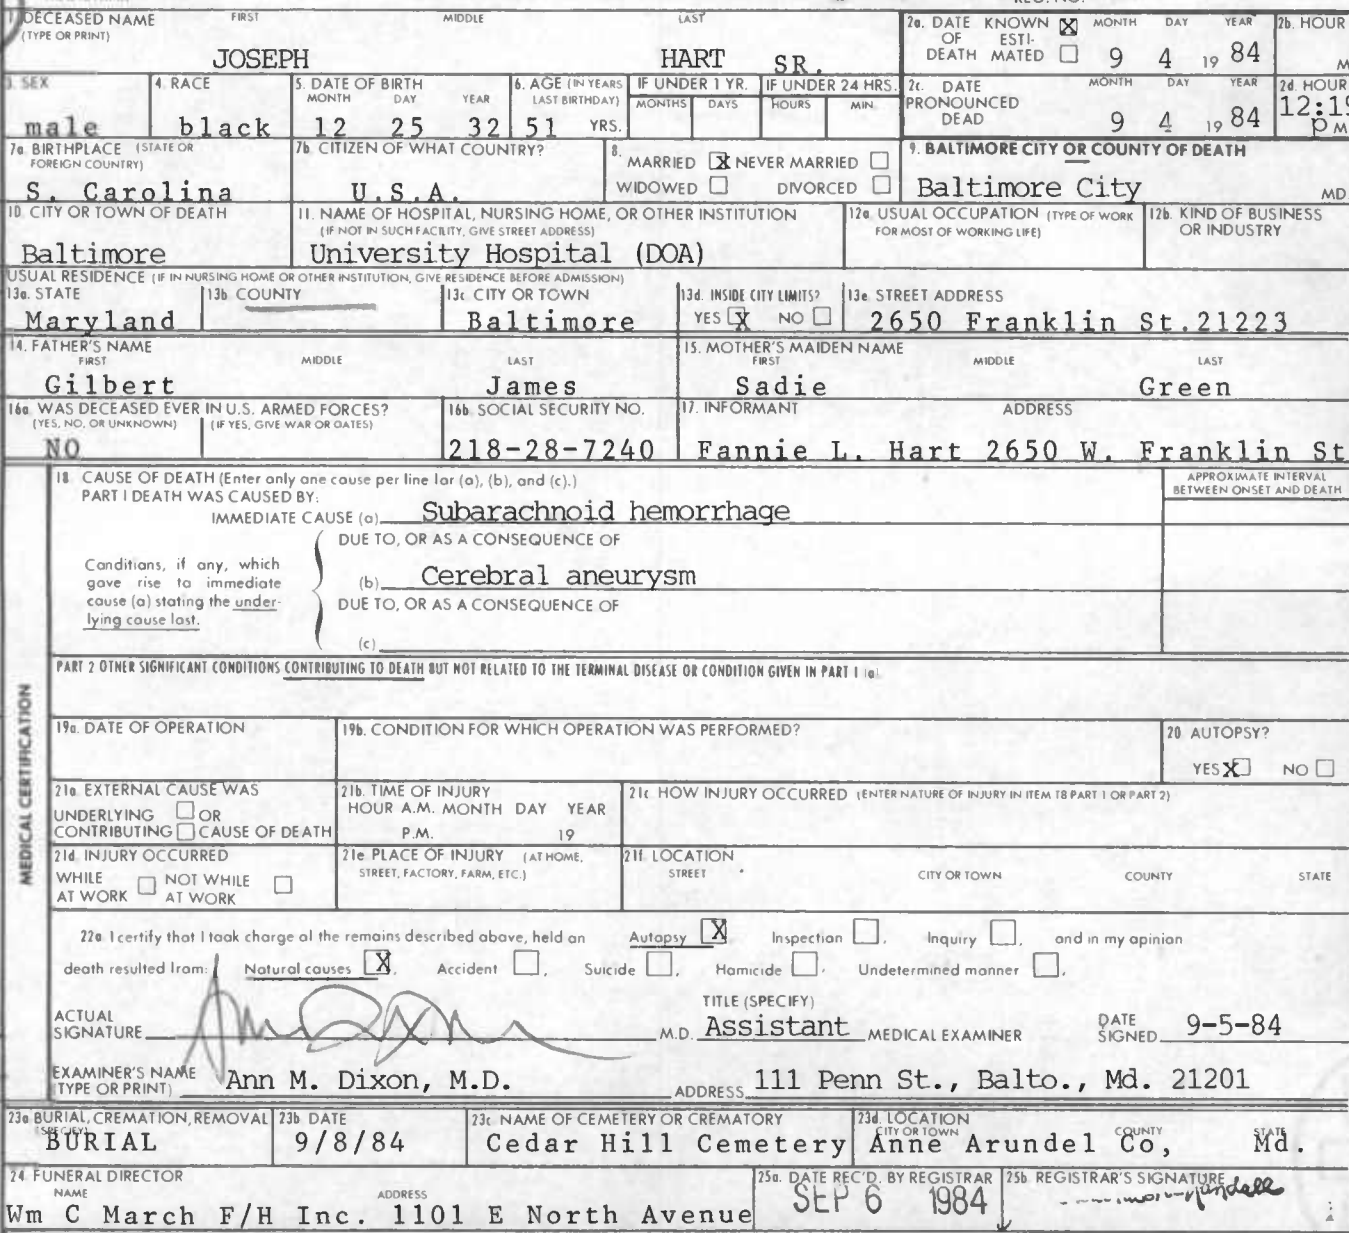 1. DECEASED NAME FIRST MIDDLE LAST
(TYPE OR PRINT)
JOSEPH HART SR.
2a. DATE OF DEATH KNOWN X ESTIMATED MONTH DAY YEAR
9 4 19 84
2b. HOUR
M
3. SEX
male
4. RACE
black
5. DATE OF BIRTH
MONTH DAY YEAR
12 25 32
6. AGE (IN YEARS LAST BIRTHDAY)
51 YRS.
IF UNDER 1 YR.
MONTHS DAYS
IF UNDER 24 HRS.
HOURS MIN.
2c. DATE PRONOUNCED DEAD MONTH DAY YEAR
9 4 19 84
2d. HOUR
12:19
P M
7a. BIRTHPLACE (STATE OR FOREIGN COUNTRY)
S. Carolina
7b. CITIZEN OF WHAT COUNTRY?
U.S.A.
8. MARRIED X NEVER MARRIED
WIDOWED DIVORCED
9. BALTIMORE CITY OR COUNTY OF DEATH
Baltimore City MD
10. CITY OR TOWN OF DEATH
Baltimore
11. NAME OF HOSPITAL, NURSING HOME, OR OTHER INSTITUTION
(IF NOT IN SUCH FACILITY, GIVE STREET ADDRESS)
University Hospital (DOA)
12a. USUAL OCCUPATION (TYPE OF WORK FOR MOST OF WORKING LIFE)
12b. KIND OF BUSINESS OR INDUSTRY
USUAL RESIDENCE (IF IN NURSING HOME OR OTHER INSTITUTION, GIVE RESIDENCE BEFORE ADMISSION)
13a. STATE
Maryland
13b. COUNTY
13c. CITY OR TOWN
Baltimore
13d. INSIDE CITY LIMITS?
YES X NO
13e. STREET ADDRESS
2650 Franklin St.21223
14. FATHER'S NAME
FIRST MIDDLE LAST
Gilbert James
15. MOTHER'S MAIDEN NAME
FIRST MIDDLE LAST
Sadie Green
16a. WAS DECEASED EVER IN U.S. ARMED FORCES?
(YES, NO, OR UNKNOWN) (IF YES, GIVE WAR OR DATES)
NO
16b. SOCIAL SECURITY NO.
218-28-7240
17. INFORMANT ADDRESS
Fannie L. Hart 2650 W. Franklin St
MEDICAL CERTIFICATION
18. CAUSE OF DEATH (Enter only one cause per line for (a), (b), and (c).)
PART I DEATH WAS CAUSED BY:
APPROXIMATE INTERVAL BETWEEN ONSET AND DEATH
IMMEDIATE CAUSE (a) Subarachnoid hemorrhage
DUE TO, OR AS A CONSEQUENCE OF
Conditions, if any, which
gave rise to immediate
cause (a) stating the under-
lying cause last.
(b) Cerebral aneurysm
DUE TO, OR AS A CONSEQUENCE OF
(c)
PART 2 OTHER SIGNIFICANT CONDITIONS CONTRIBUTING TO DEATH BUT NOT RELATED TO THE TERMINAL DISEASE OR CONDITION GIVEN IN PART 1 (a)
19a. DATE OF OPERATION
19b. CONDITION FOR WHICH OPERATION WAS PERFORMED?
20. AUTOPSY?
YES X NO
21a. EXTERNAL CAUSE WAS
UNDERLYING OR
CONTRIBUTING CAUSE OF DEATH
21b. TIME OF INJURY
HOUR A.M. MONTH DAY YEAR
P.M. 19
21c. HOW INJURY OCCURRED (ENTER NATURE OF INJURY IN ITEM 18 PART 1 OR PART 2)
21d. INJURY OCCURRED
WHILE AT WORK NOT WHILE AT WORK
21e. PLACE OF INJURY (AT HOME, STREET, FACTORY, FARM, ETC.)
21f. LOCATION
STREET CITY OR TOWN COUNTY STATE
22a. I certify that I took charge of the remains described above, held an Autopsy X Inspection , Inquiry , and in my opinion
death resulted from: Natural causes X, Accident , Suicide , Homicide , Undetermined manner .
ACTUAL SIGNATURE M.D.
TITLE (SPECIFY)
Assistant MEDICAL EXAMINER
DATE SIGNED 9-5-84
EXAMINER'S NAME (TYPE OR PRINT) Ann M. Dixon, M.D.
ADDRESS 111 Penn St., Balto., Md. 21201
23a. BURIAL, CREMATION, REMOVAL (SPECIFY)
BURIAL
23b. DATE
9/8/84
23c. NAME OF CEMETERY OR CREMATORY
Cedar Hill Cemetery
23d. LOCATION
CITY OR TOWN COUNTY STATE
Anne Arundel Co, Md.
24. FUNERAL DIRECTOR
NAME ADDRESS
Wm C March F/H Inc. 1101 E North Avenue
25a. DATE REC'D. BY REGISTRAR
SEP 6 1984
25b. REGISTRAR'S SIGNATURE